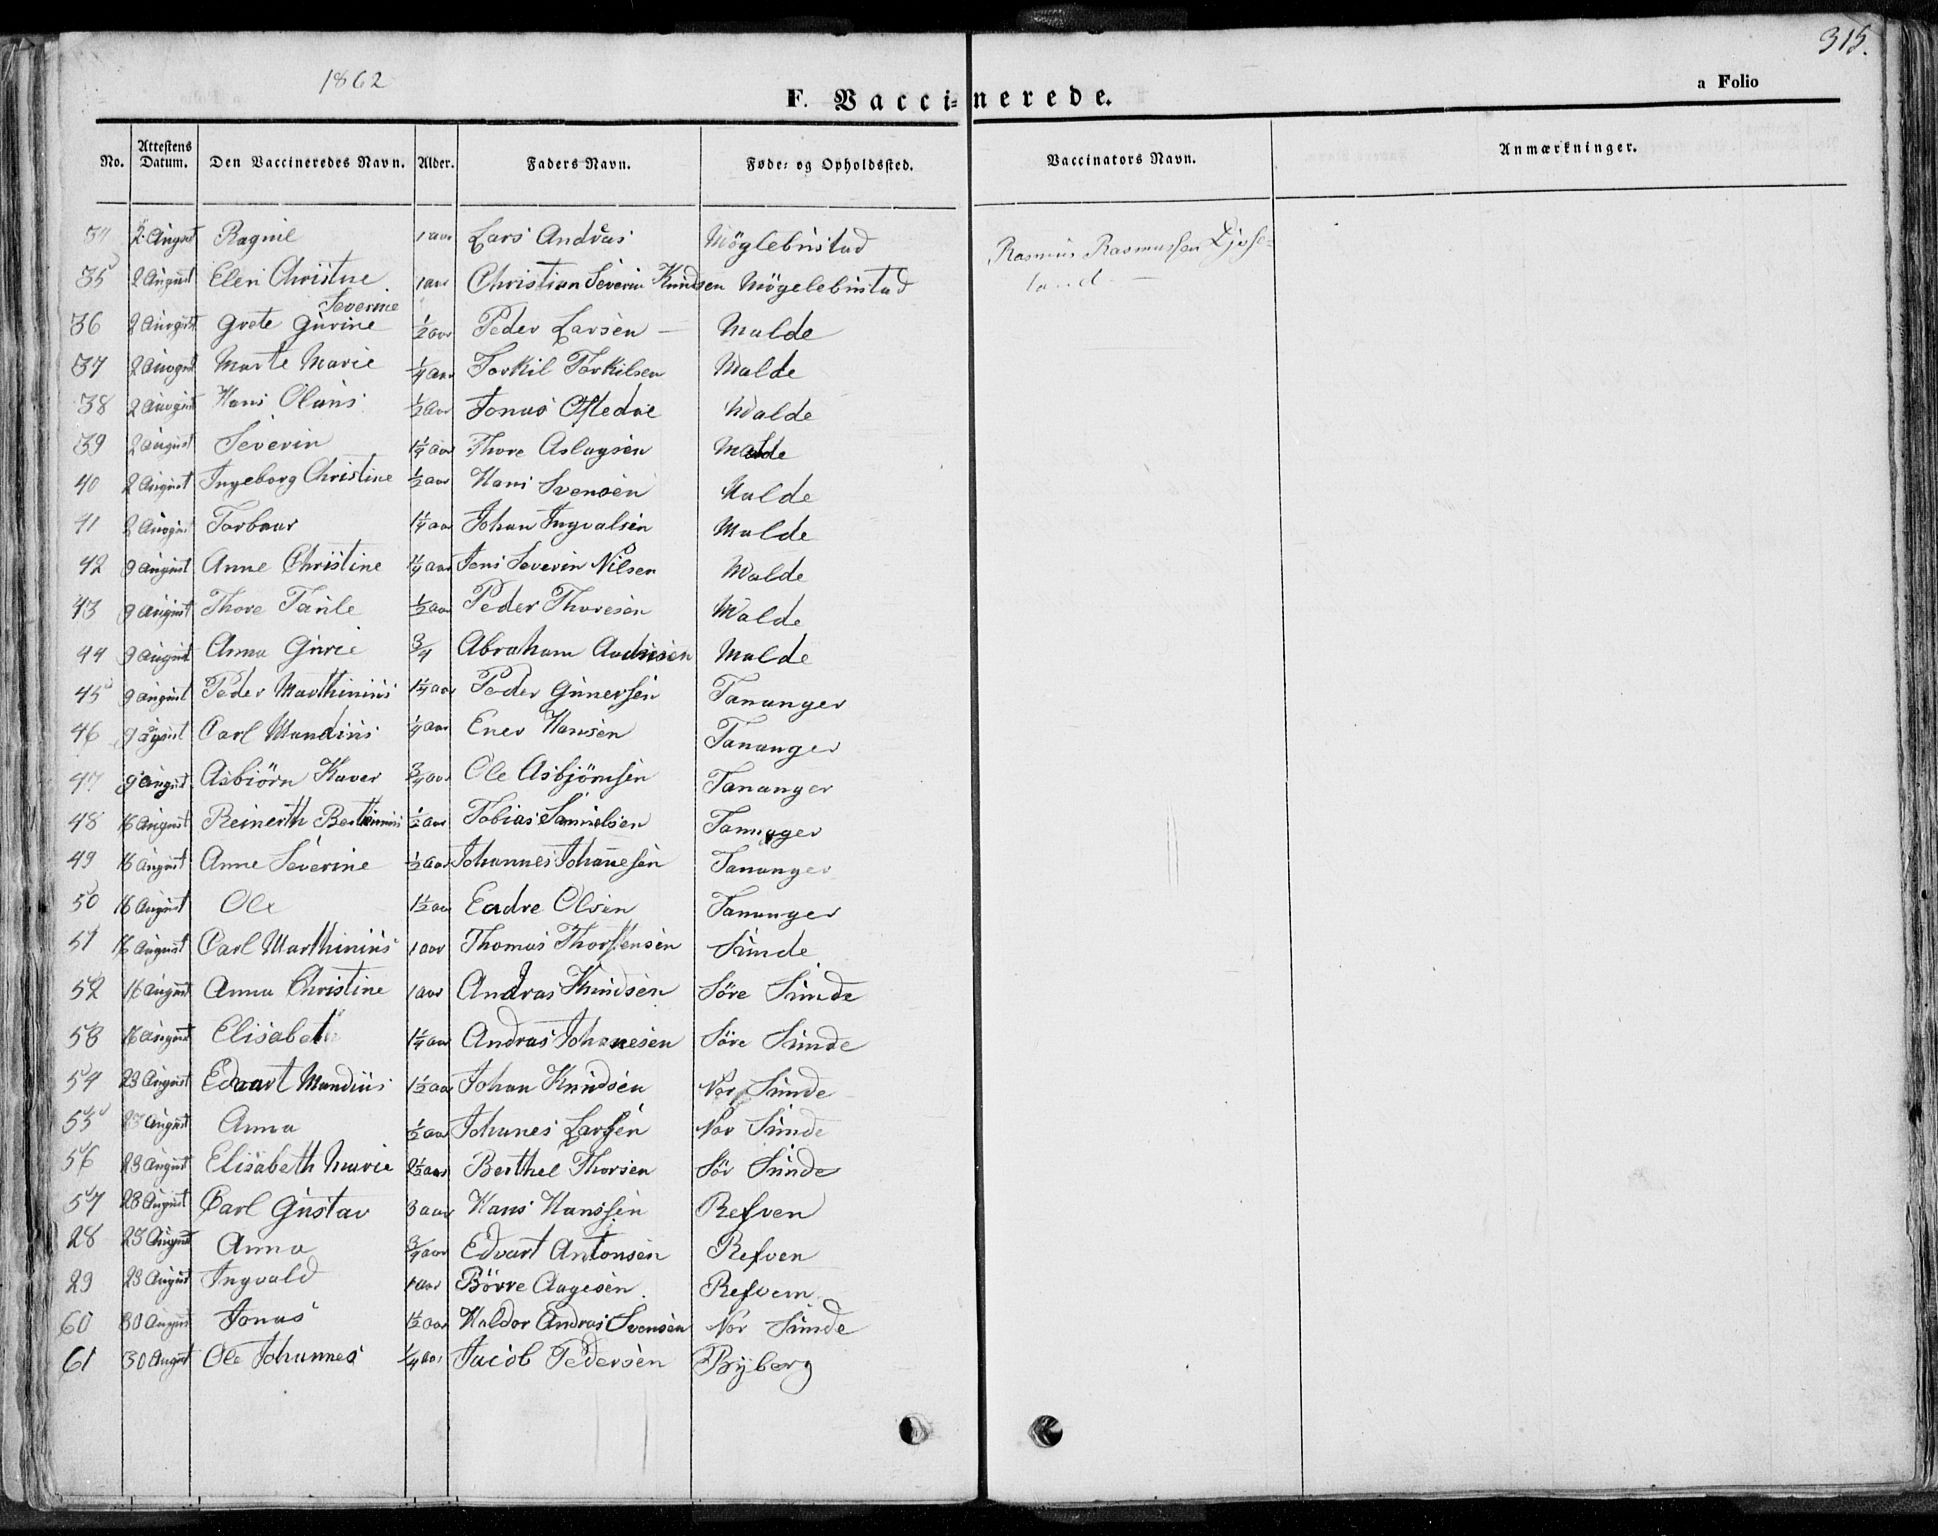 315.
1862
F. Vaccinerede.
a Folio
No. Attestens Datum. Den Vaccineredes Navn. Alder. Faders Navn. Føde- og Opholdssted. Vaccinators Navn. Anmærkninger.
34 2 August Ragnil 1 aar Lars Andras Möglebustad Rasmus Rasmussen
35 2 August Elen Christine 1 aar Christian Severin Knudsen Mögelebustad land
Severine
36 2 August Grete Gurine 1/2 aar Peder Larsen Malde
37 2 August Marte Marie 1/4 aar Torkil Torkilsen Malde
38 2 August Hans Olaus 1/2 aar Jonas Oftedal Malde
39 2 August Severin 1 1/4 aar Thore Aslagsen Malde
40 2 August Ingeborg Christine 1/2 aar Hans Svensen Malde
41 2 August Torbaar 1 1/4 aar Johan Ingvalsen Malde
42 9 August Anne Christine 1/4 aar Jens Severin Nilsen Malde
43 9 August Thore Tarile 1/2 aar Peder Thoresen Malde
44 9 August Anna Gurie 3/4 Abraham Audnsen Malde
45 9 august Peder Marthinius 1 1/4 aar Peder Gunersen Tananger
46 9 Agust Carl Mandius 1/4 aar Ener Hansen Tananger
47 9 August Asbiörn Kaver 3/4 aar Ole Asbjörnsen Tananger
48 16 August Reinerth Berthinius 1/2 aar Tobias Samuelsen Tananger
49 16 August Anne Severine 1/2 aar Johannes Johanesen Tananger
50 16 August Ole 1 1/2 aar Endre Olsen Tananger
51 16 August Carl Marthinius 1 aar Thomas Thorstensen Sunde
52 16 August Anna Christine 1 aar Andras Knudsen Söre Sunde
53 16 August Elisabet 1 1/4 aar Andras Johanesen Söre Sunde
54 23 August Edvart Mandius 1 1/2 aar Johan Knudsen Nor Sunde
55 23 August Anna 1/2 aar Johanes Larsen Nor Sunde
56 23 August Elisabeth Marie 2 1/2 aar Berthel Thorsen Sör Sunde
57 23 August Carl Gustav 3 aar Hans Hanssen Refven
28 23 August Anna 3/4 aar Edvart Antonsen Refven
29 23 August Ingvald 1 aar Börre Aagesen Refvem
60 30 August Jonas 1 1/2 aar Haldor Andras Svensen Nor Sunde
61 30 August Ole Johannes 1/4 aar Jacob Pedersen Byberg